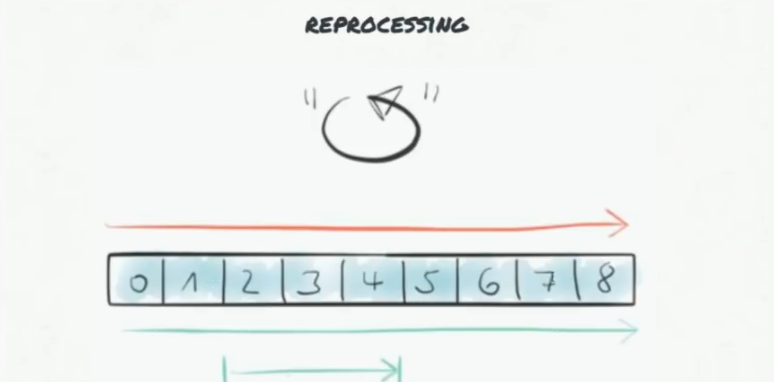 REPROCESSING
0 1 2 3 4 5 6 7 8